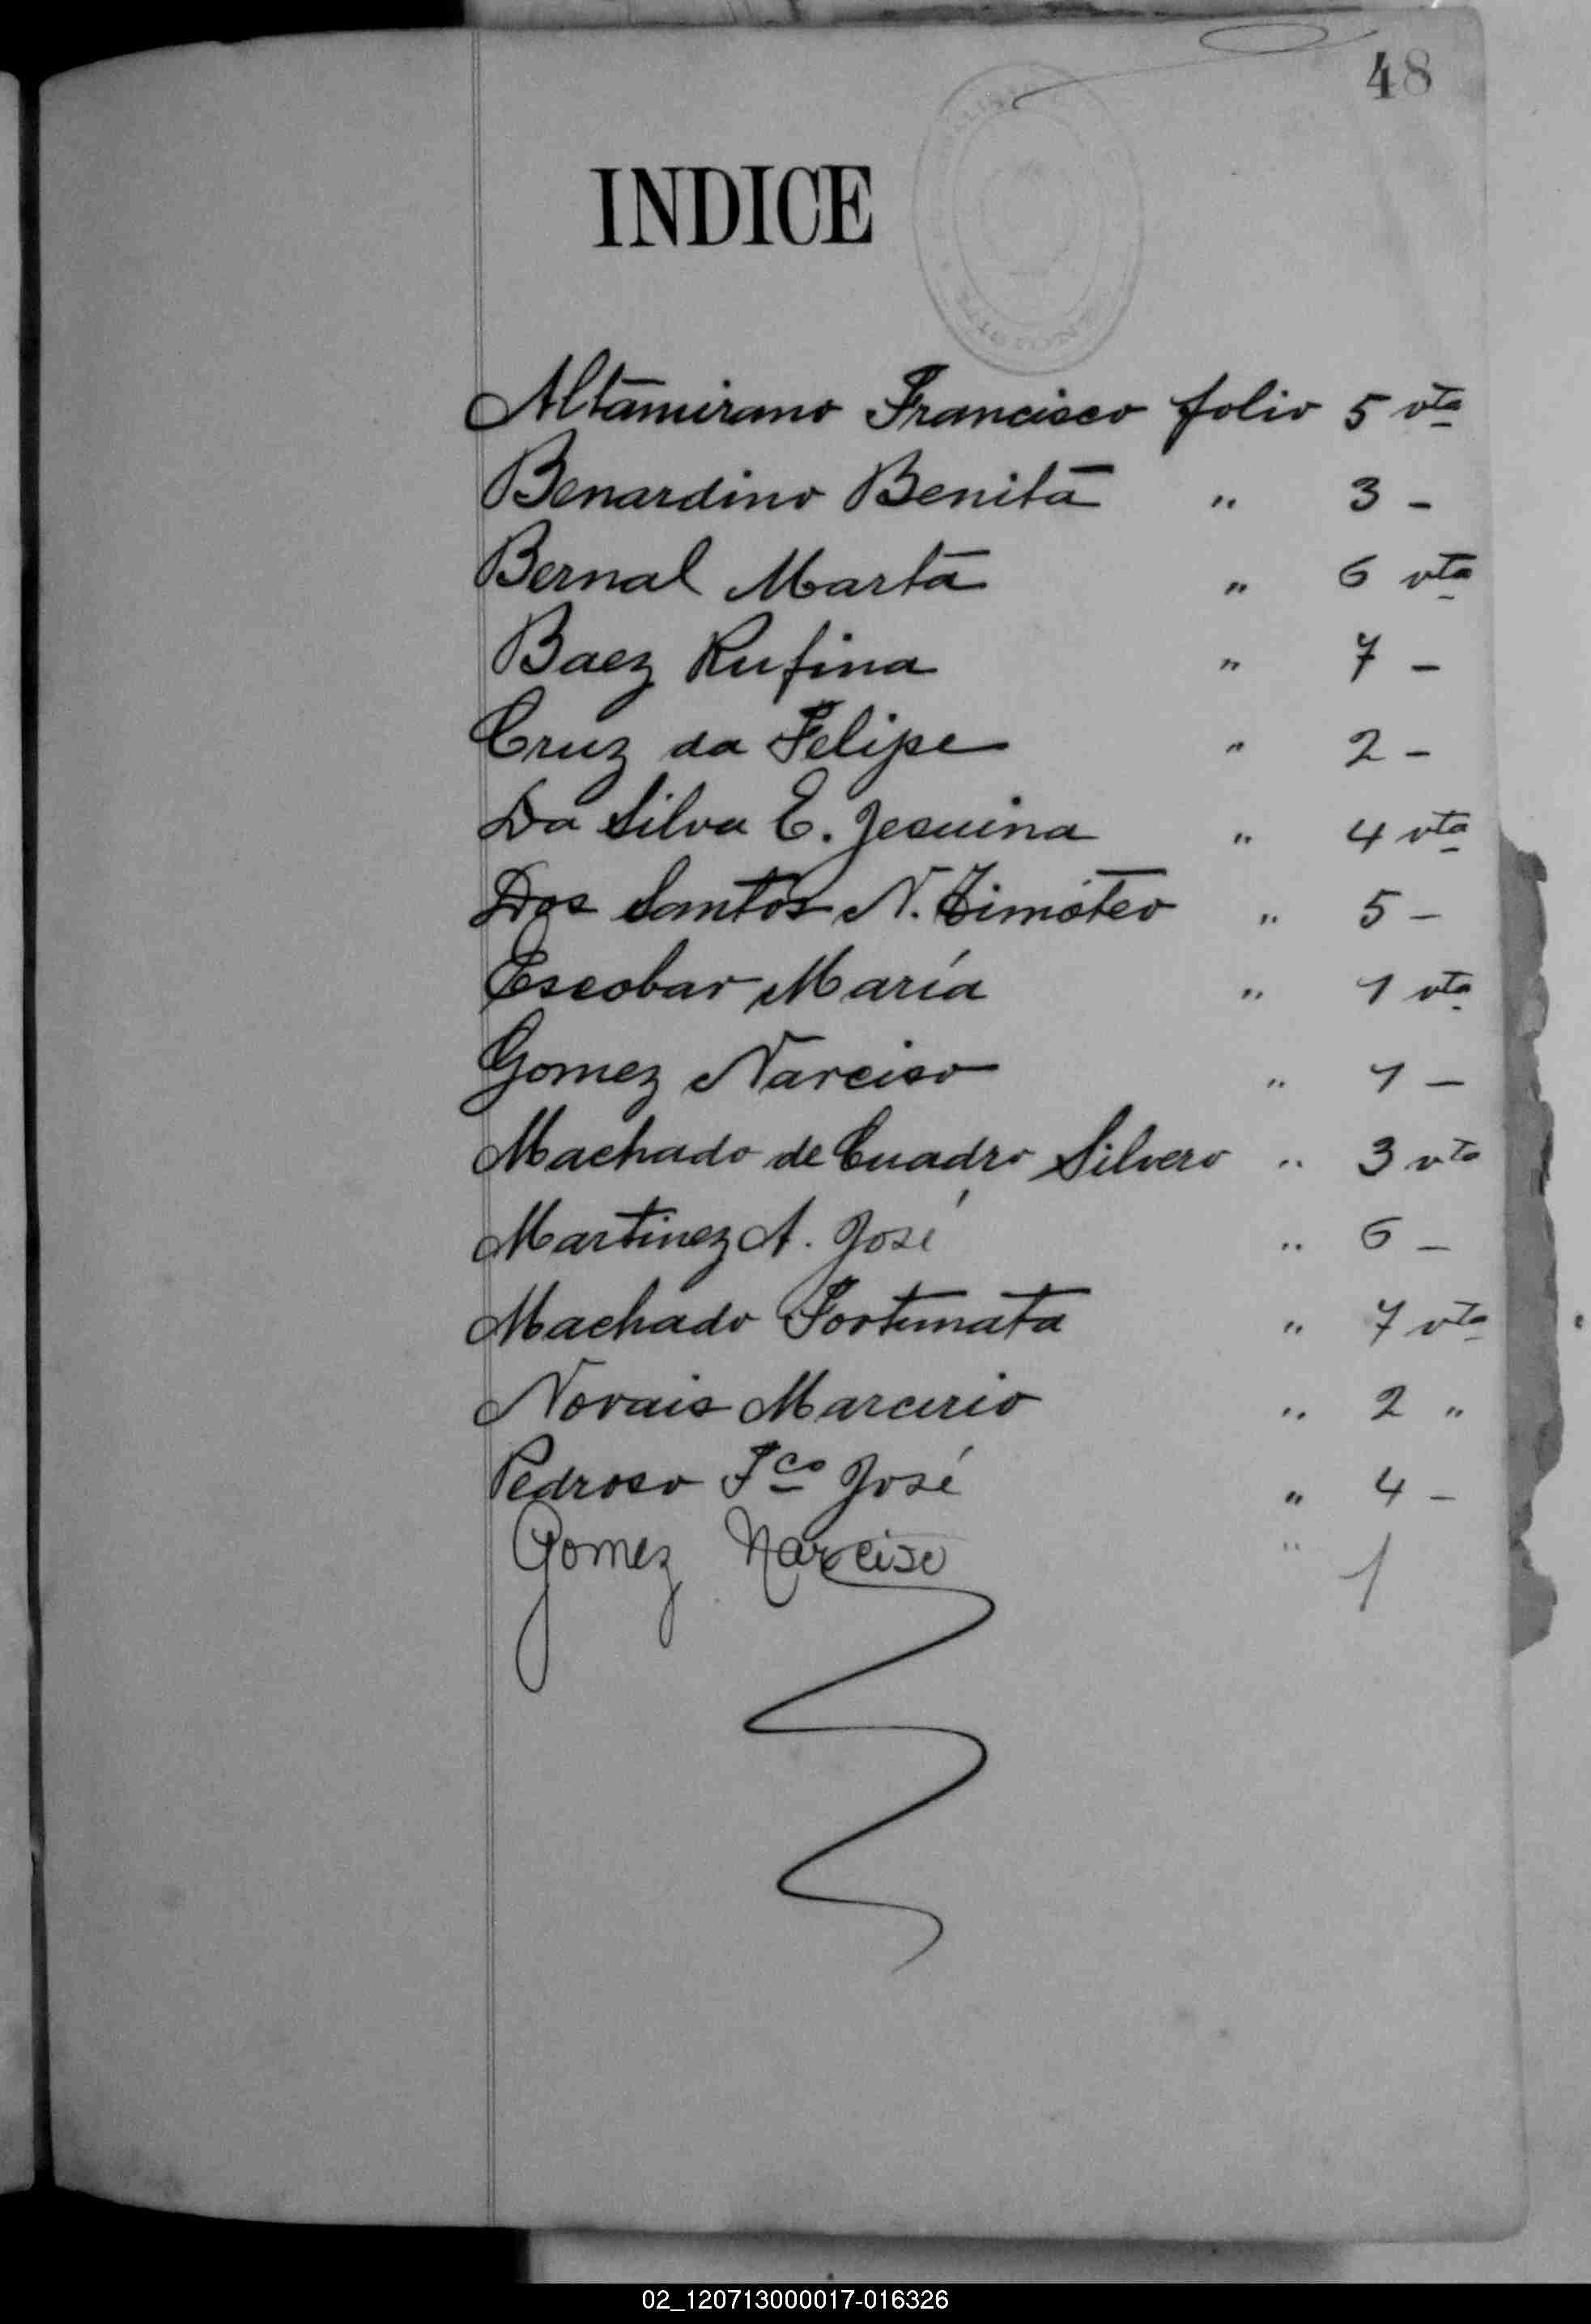 48
INDICE
Altamirano Francisco folio 5 vta
Benardino Benita " 3 -
Bernal Marta " 6 vta
Baez Rufina " 7 -
Cruz da Felipe " 2 -
Da Silva E. Jesuina " 4 vta
Dos Santos N. Timoteo " 5 -
Escobar María " 1 vta
Gomez Narciso " 1 -
Machado de Cuadro Silvero " 3 vta
Martinez A. José " 6 -
Machado Fortunata " 7 vta
Novais Marcirio " 2 "
Pedroso Fco José " 4 -
Gomez Narciso " 1
02_120713000017-016326